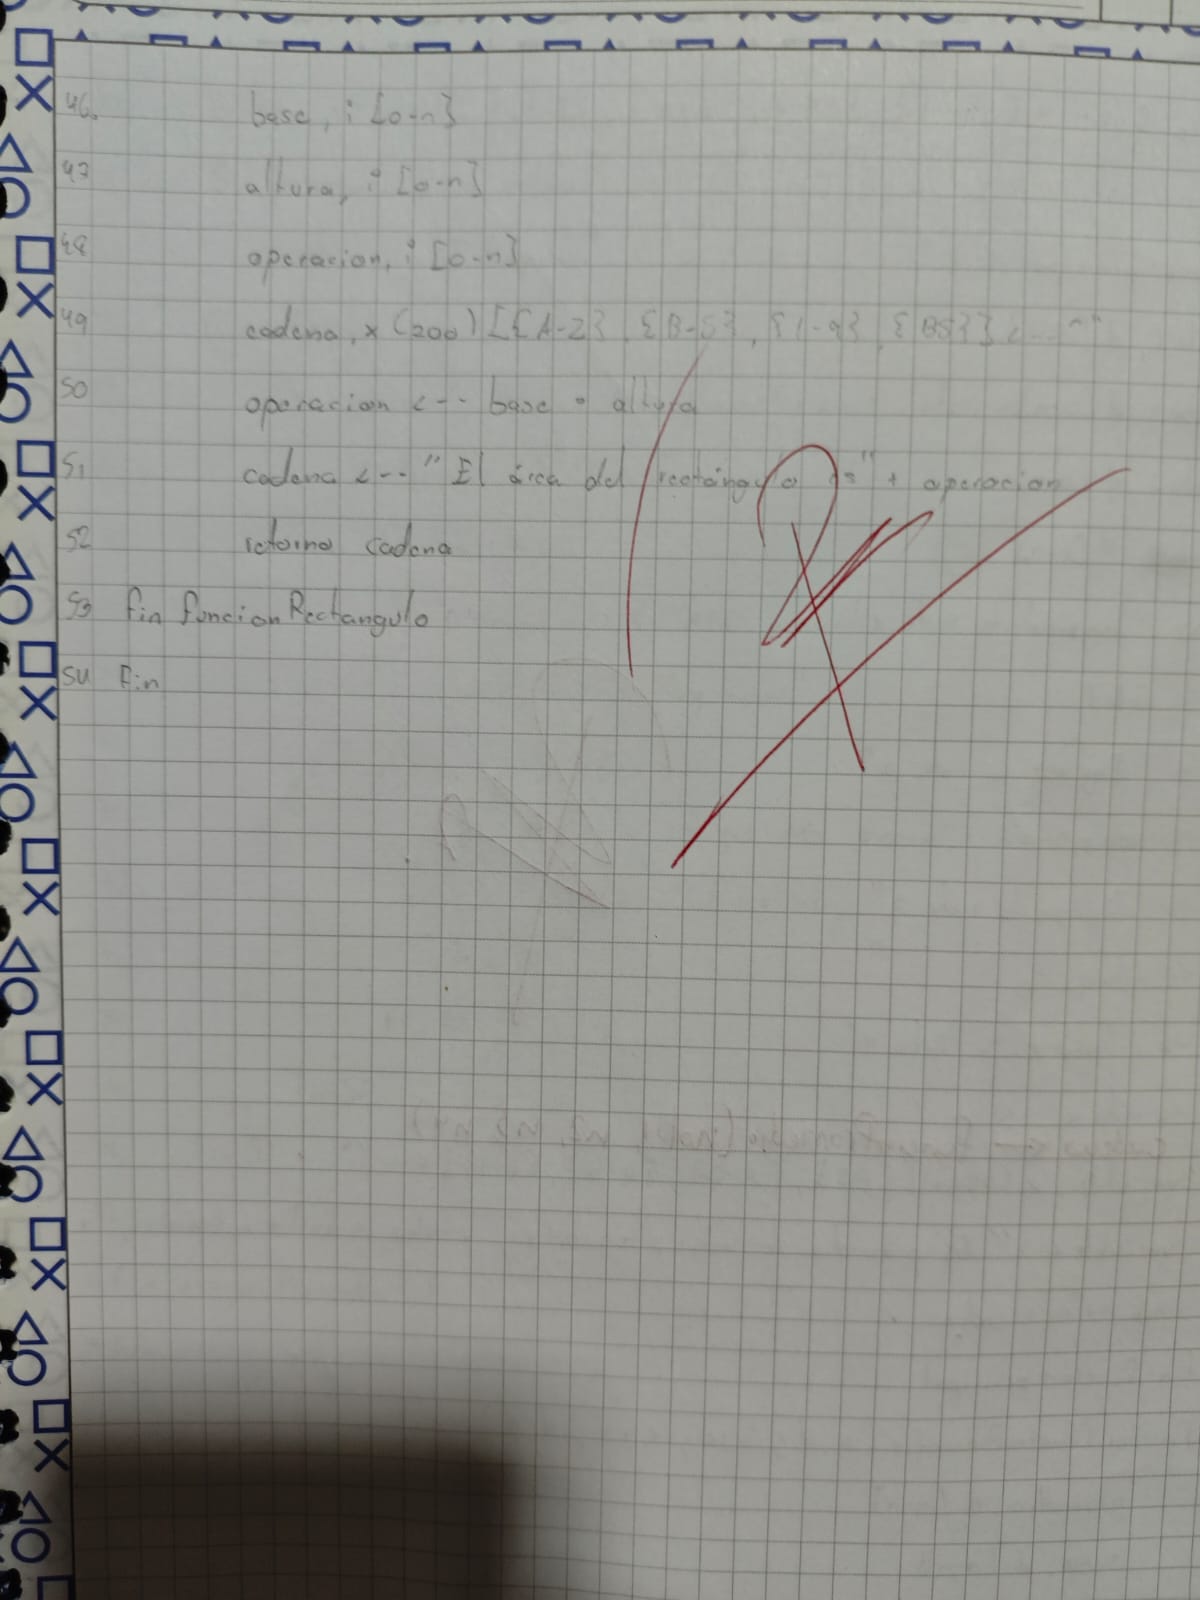 46. base, i [0-n]
47 altura, i [0-n]
48 operacion, i [0-n]
49 cadena, x (200) [{A-Z}, {B-S}, {1-9}, {BS}] <-- ""
50 operacion <-- base * altura
51 cadena <-- "El área del rectángulo es" + operacion
52 retorno cadena
53 Fin funcion Rectangulo
54 Fin